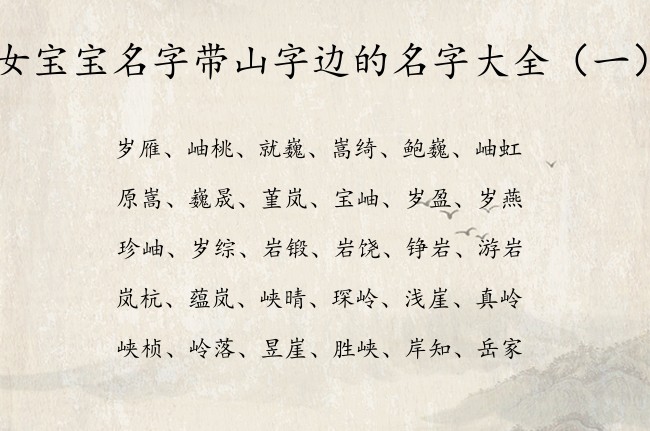 女宝宝名字带山字边的名字大全（一）
岁雁、岫桃、就巍、嵩绮、鲍巍、岫虹
原嵩、巍晟、堇岚、宝岫、岁盈、岁燕
珍岫、岁综、岩锻、岩饶、铮岩、游岩
岚杭、蕴岚、峡晴、琛岭、浅崖、真岭
峡桢、岭落、昱崖、胜峡、岸知、岳家